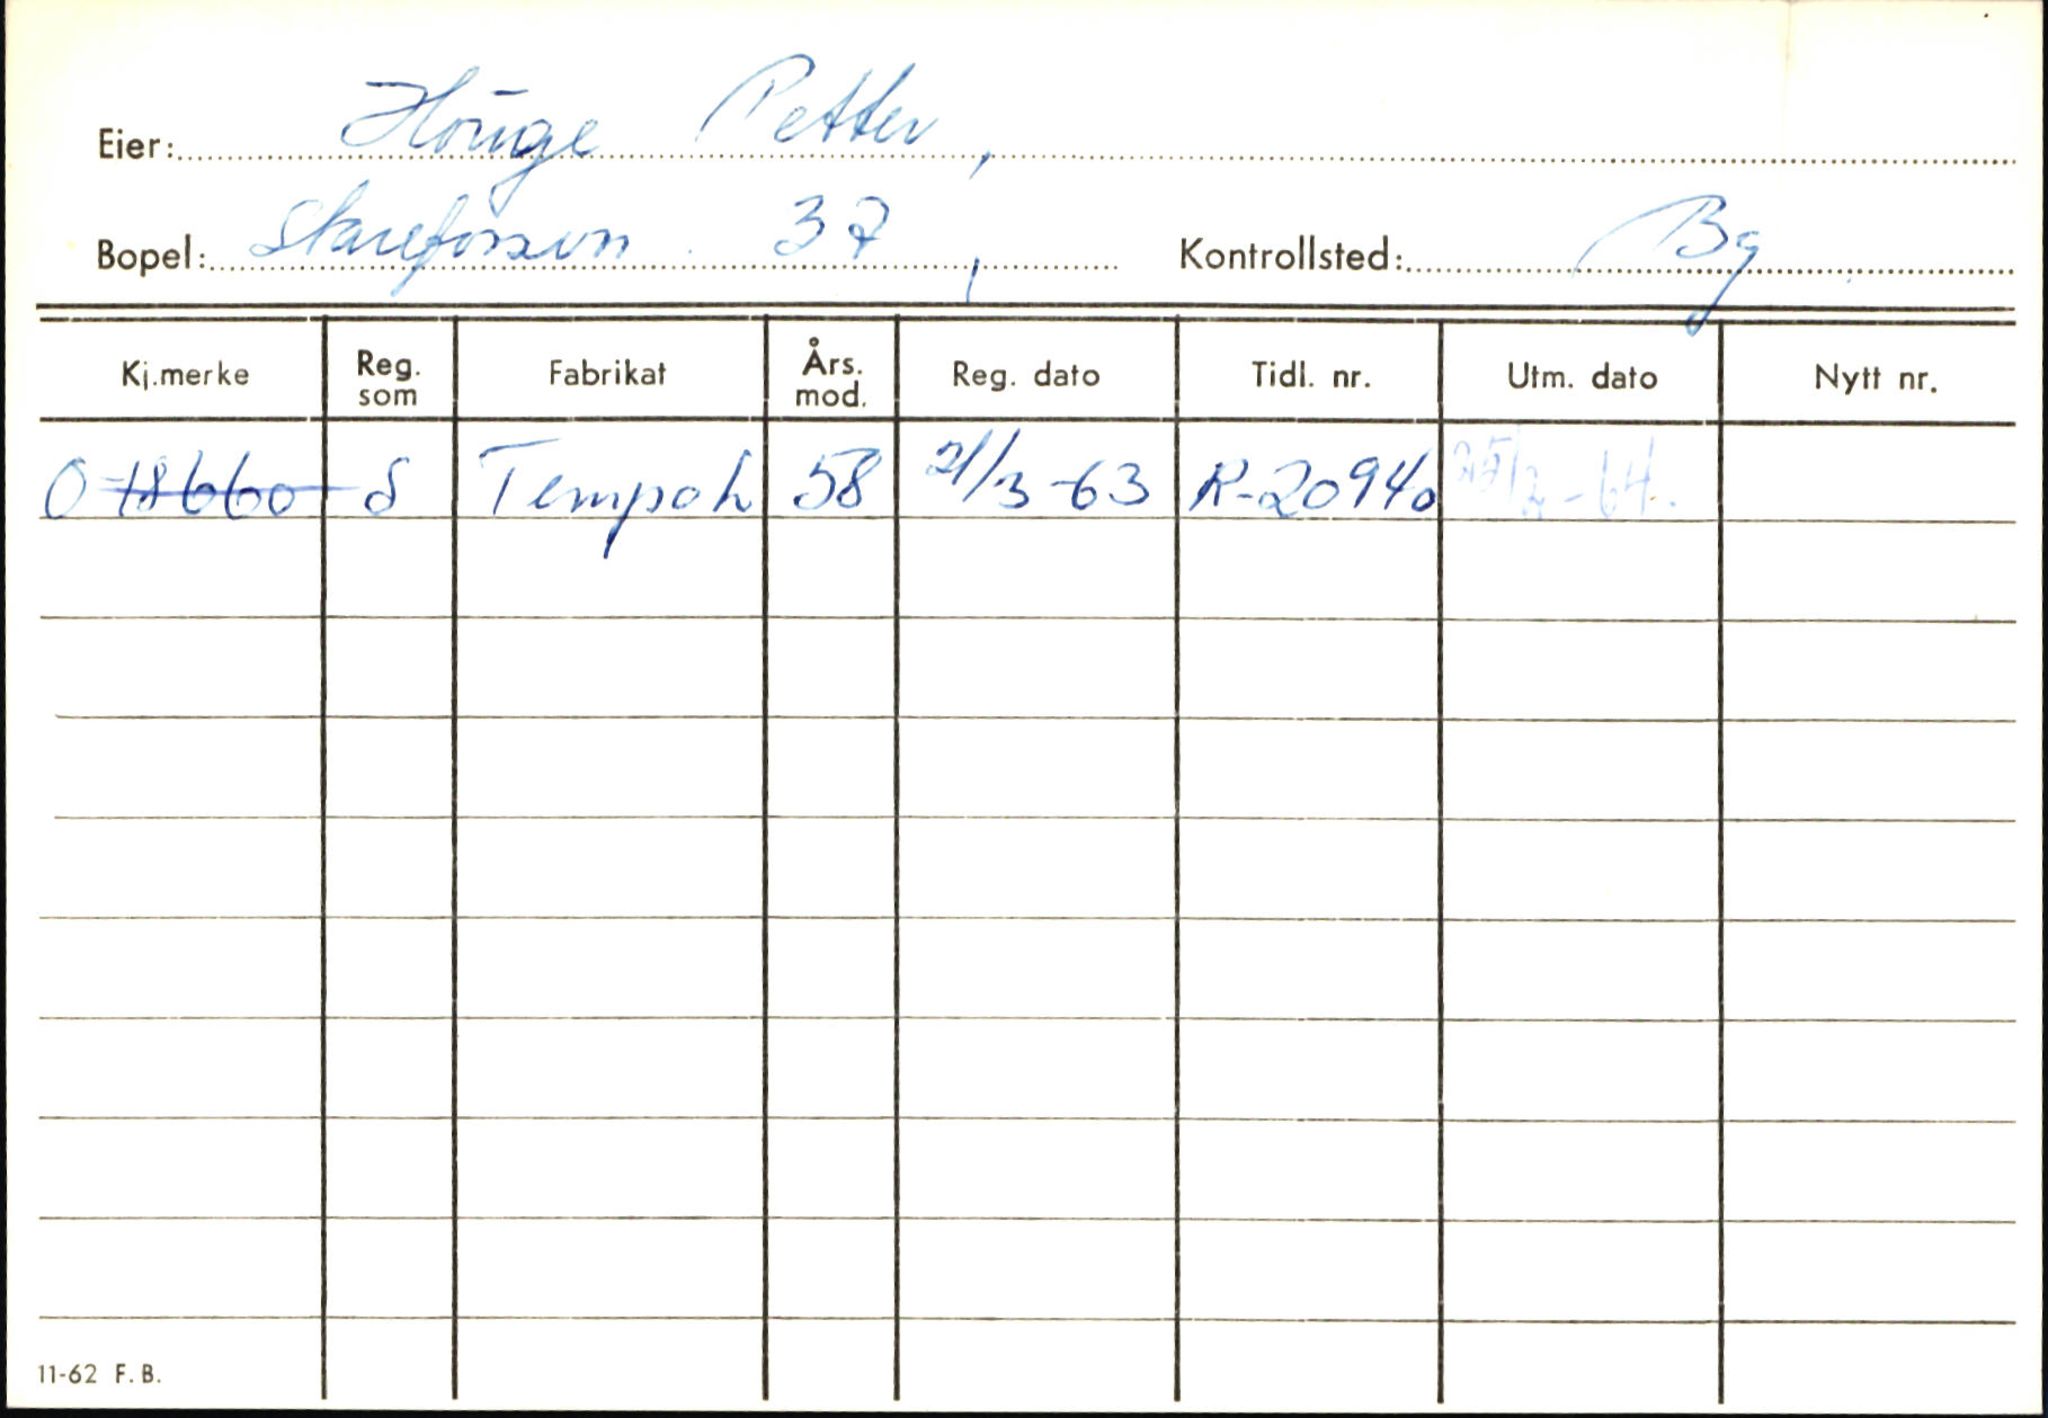 Eier: Höuge Petter,
Bopel: 37, Kontrollsted: Bg
Kj.merke Reg. som Fabrikat Års. mod. Reg. dato Tidl. nr. Utm. dato Nytt nr.
O-18660 S Tempo 58 21/3-63 R-20940 -64.
11-62 F. B.